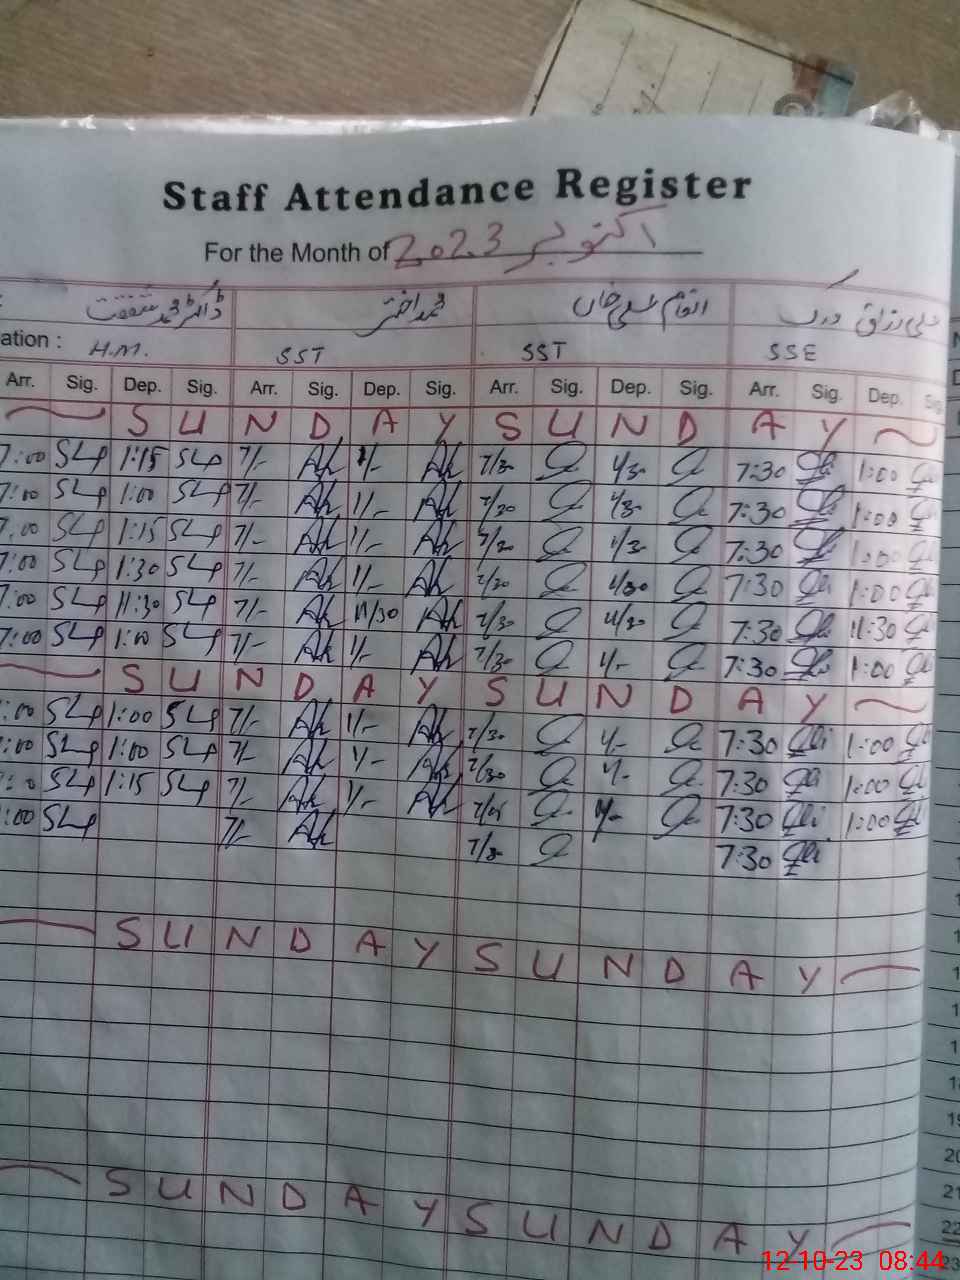 Staff Attendance Register
For the Month of اکتوبر 2023
ڈاکٹر محمد شفقت محمد اختر انعام علی خاں علی رزاق ورک
ation : H.M. SST SST SSE
Arr. Sig. Dep. Sig. Arr. Sig. Dep. Sig. Arr. Sig. Dep. Sig. Arr. Sig. Dep. Sig
S U N D A Y S U N D A Y
7:00 SLP 1:15 SLP 7/- Ak 1/- Ak 7/30 1/30 7:30 1:00
7:00 SLP 1:00 SLP 7/- Ak 1/- Ak 7/30 1/30 7:30 1:00
7:00 SLP 1:15 SLP 7/- Ak 1/- Ak 7/30 1/30 7:30 1:00
7:00 SLP 1:30 SLP 7/- Ak 1/- Ak 7/30 1/30 7:30 1:00
7:00 SLP 11:30 SLP 7/- Ak 11/30 Ak 7/30 11/30 7:30 11:30
7:00 SLP 1:00 SLP 7/- Ak 1/- Ak 7/30 1/- 7:30 1:00
S U N D A Y S U N D A Y
:00 SLP 1:00 SLP 7/- Ak 1/- Ak 7/30 1/- 7:30 1:00
:00 SLP 1:00 SLP 7/- Ak 1/- Ak 7/30 1/- 7:30 1:00
SLP 1:15 SLP 7/- Ak 1/- Ak 1/- 7:30 1:00
:00 SLP 7/- Ak 7/30 7:30
S U N D A Y S U N D A Y
S U N D A Y S U N D A Y
20
21
22
23
12-10-23 08:44